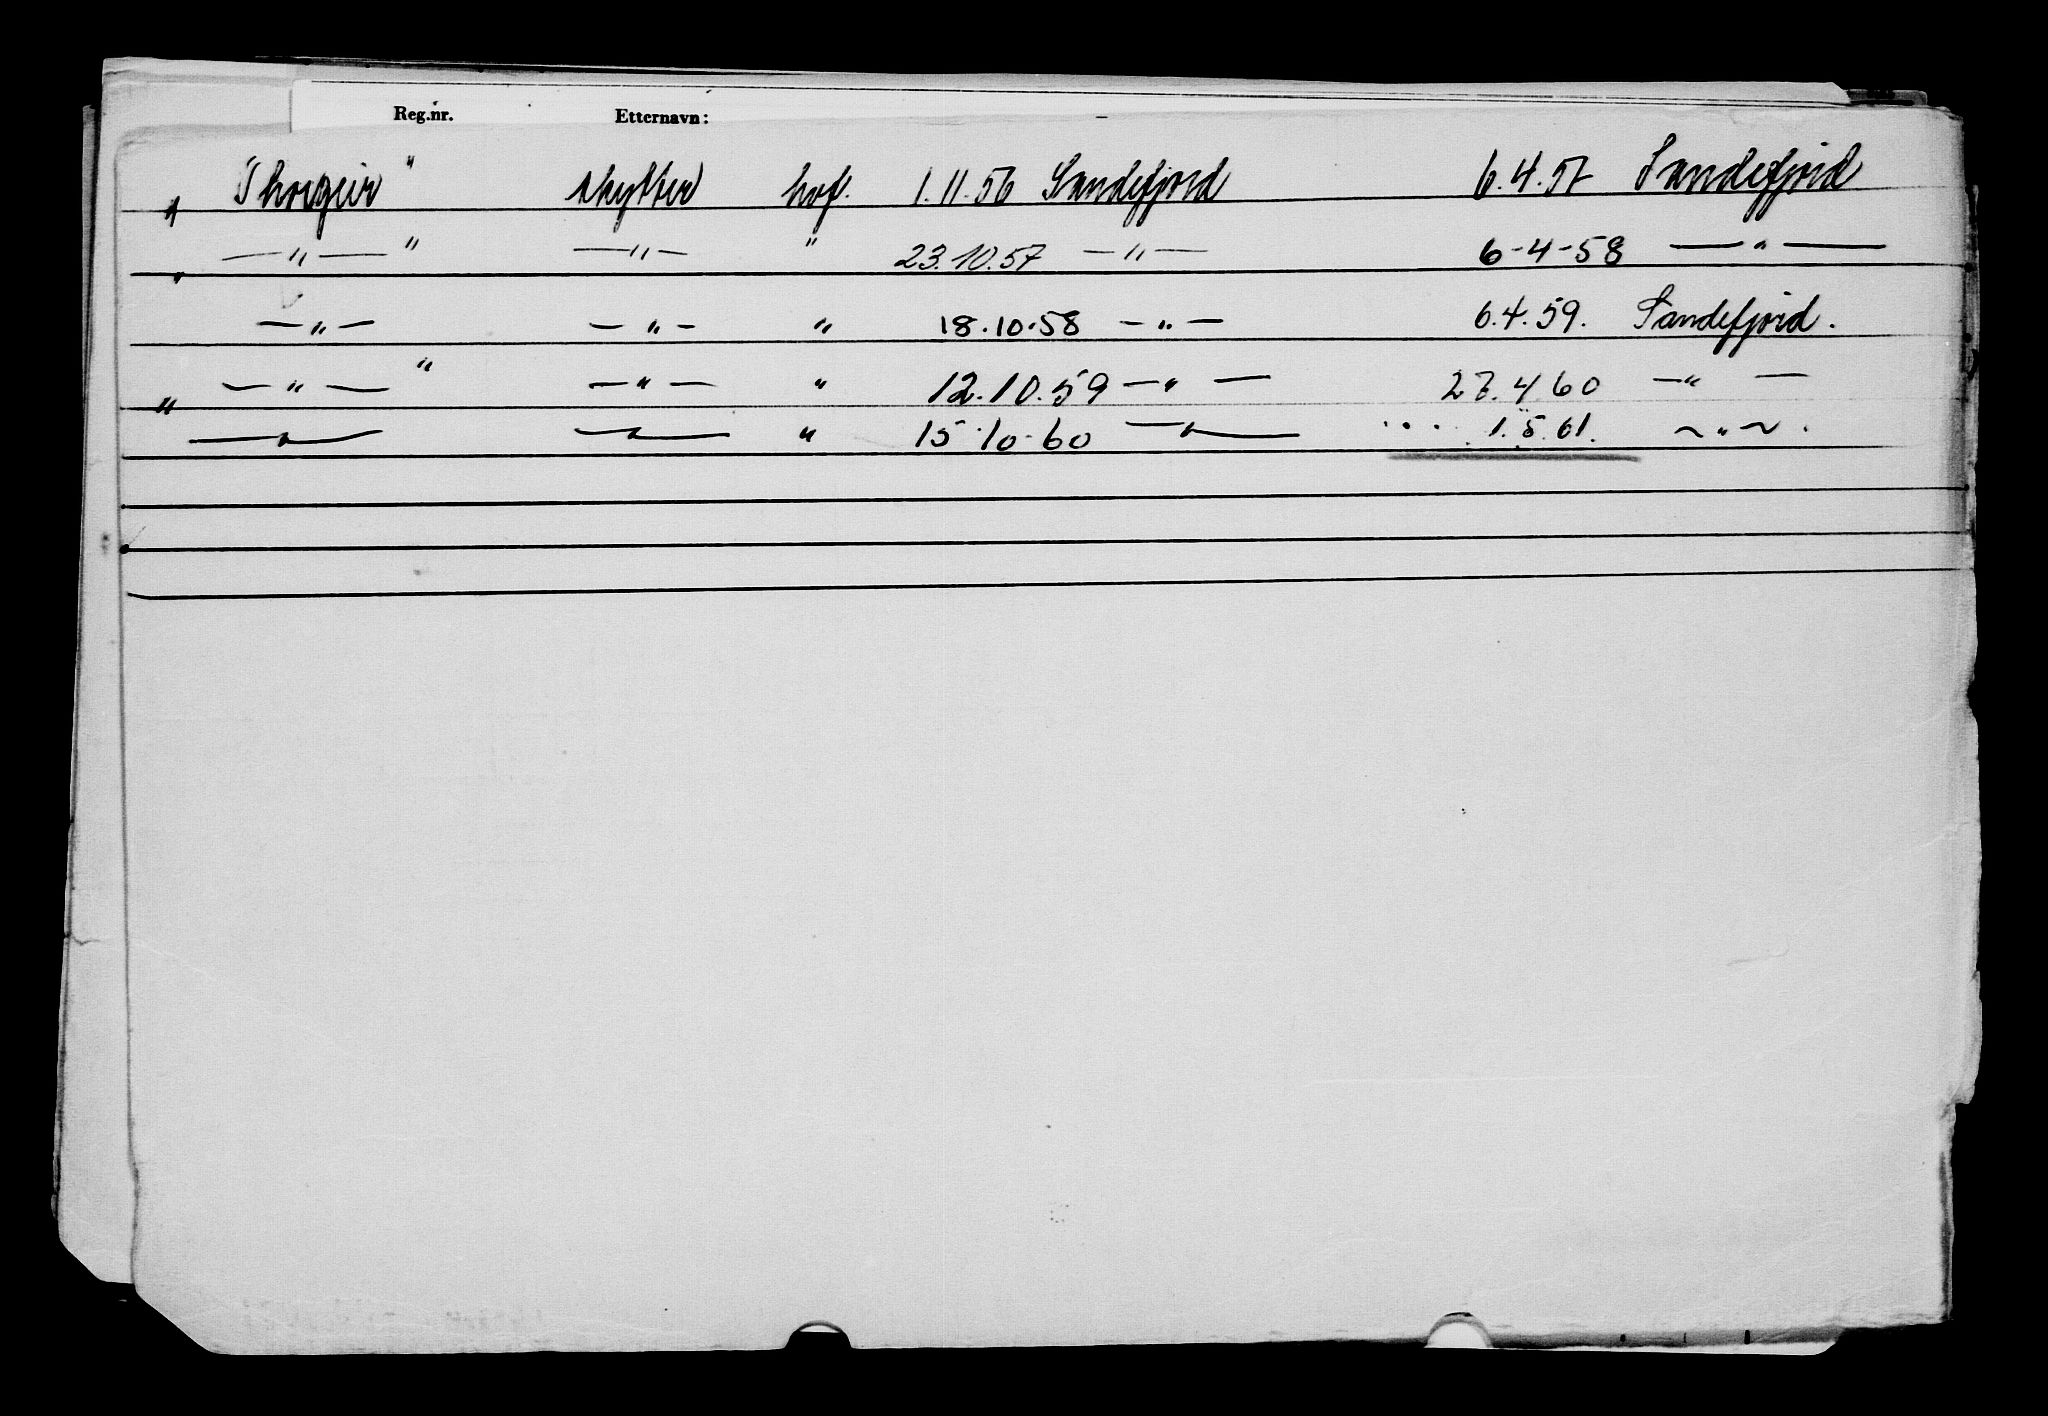 Reg.nr. Etternavn:
" "Thorgeir" skytter hvf. 1.11.56 Sandefjord 6.4.57 Sandefjord
" —"—" —"— " 23.10.57 —"— 6-4-58 —"—
—"— —"— " 18.10.58 —"— 6.4.59. Sandefjord.
" —"—" —"— " 12.10.59 —"— 27.4 60 —"—
—"— —"— " 15.10.60 —"— 1.5.61. —"—.